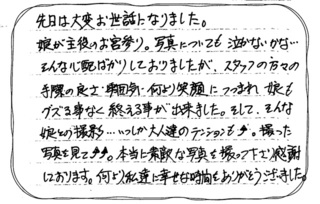 先日は大変お世話になりました。
娘が主役のお宮参り。写真についても泣かないかな…
そんな心配ばかりしておりましたが、スタッフの方々の
手際の良さ、雰囲気、何より笑顔につつまれ娘も
グズる事なく終える事が出来ました。そして、そんな
娘との撮影…いつしか大人達のテンションも↗。撮った
写真を見て↗↗。本当に素敵な写真を撮って下さり感謝
しております。何より私達に幸せな時間をありがとうございました。